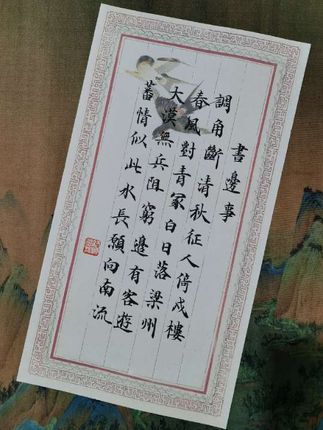 書邊事
調角斷清秋征人倚戍樓
春風對青冢白日落梁州
大漠無兵阻窮邊有客遊
蕃情似此水長願向南流